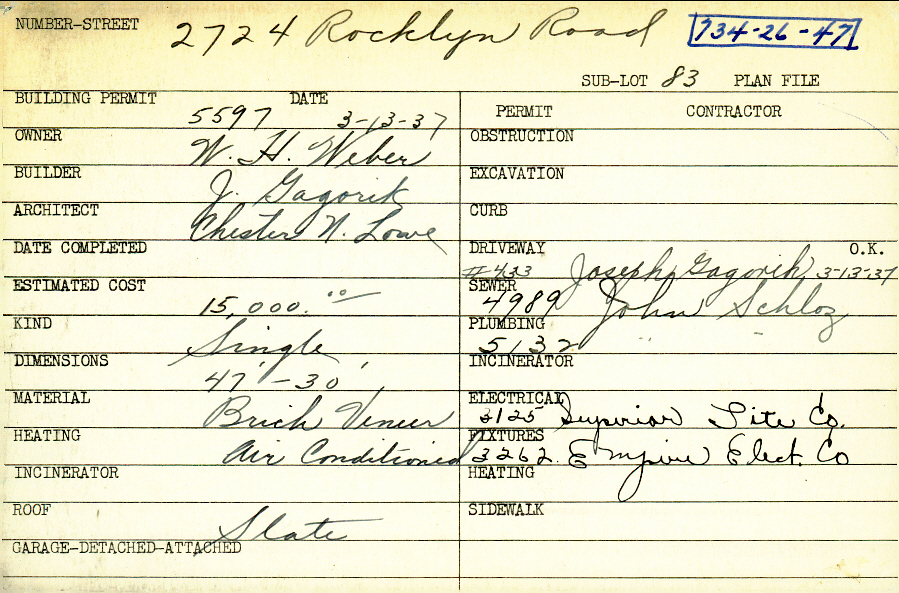 NUMBER-STREET 2724 Rocklyn Road 734-26-47
SUB-LOT 83 PLAN FILE
BUILDING PERMIT 5597 DATE 3-13-37
PERMIT CONTRACTOR
OWNER W. H. Weber
OBSTRUCTION
BUILDER J. Gagorik
EXCAVATION
ARCHITECT Chester N. Lowe
CURB
DATE COMPLETED
DRIVEWAY #433 Joseph Gagorik 3-13-37 O.K.
ESTIMATED COST 15,000.00
SEWER 4989 John Schloz
KIND Single
PLUMBING 5132 " "
DIMENSIONS 47' - 30'
INCINERATOR
MATERIAL Brick Veneer
ELECTRICAL 3125 Superior Lite Co.
HEATING Air Conditioned
FIXTURES 3262. Empire Elect. Co
INCINERATOR
HEATING
ROOF Slate
SIDEWALK
GARAGE-DETACHED-ATTACHED